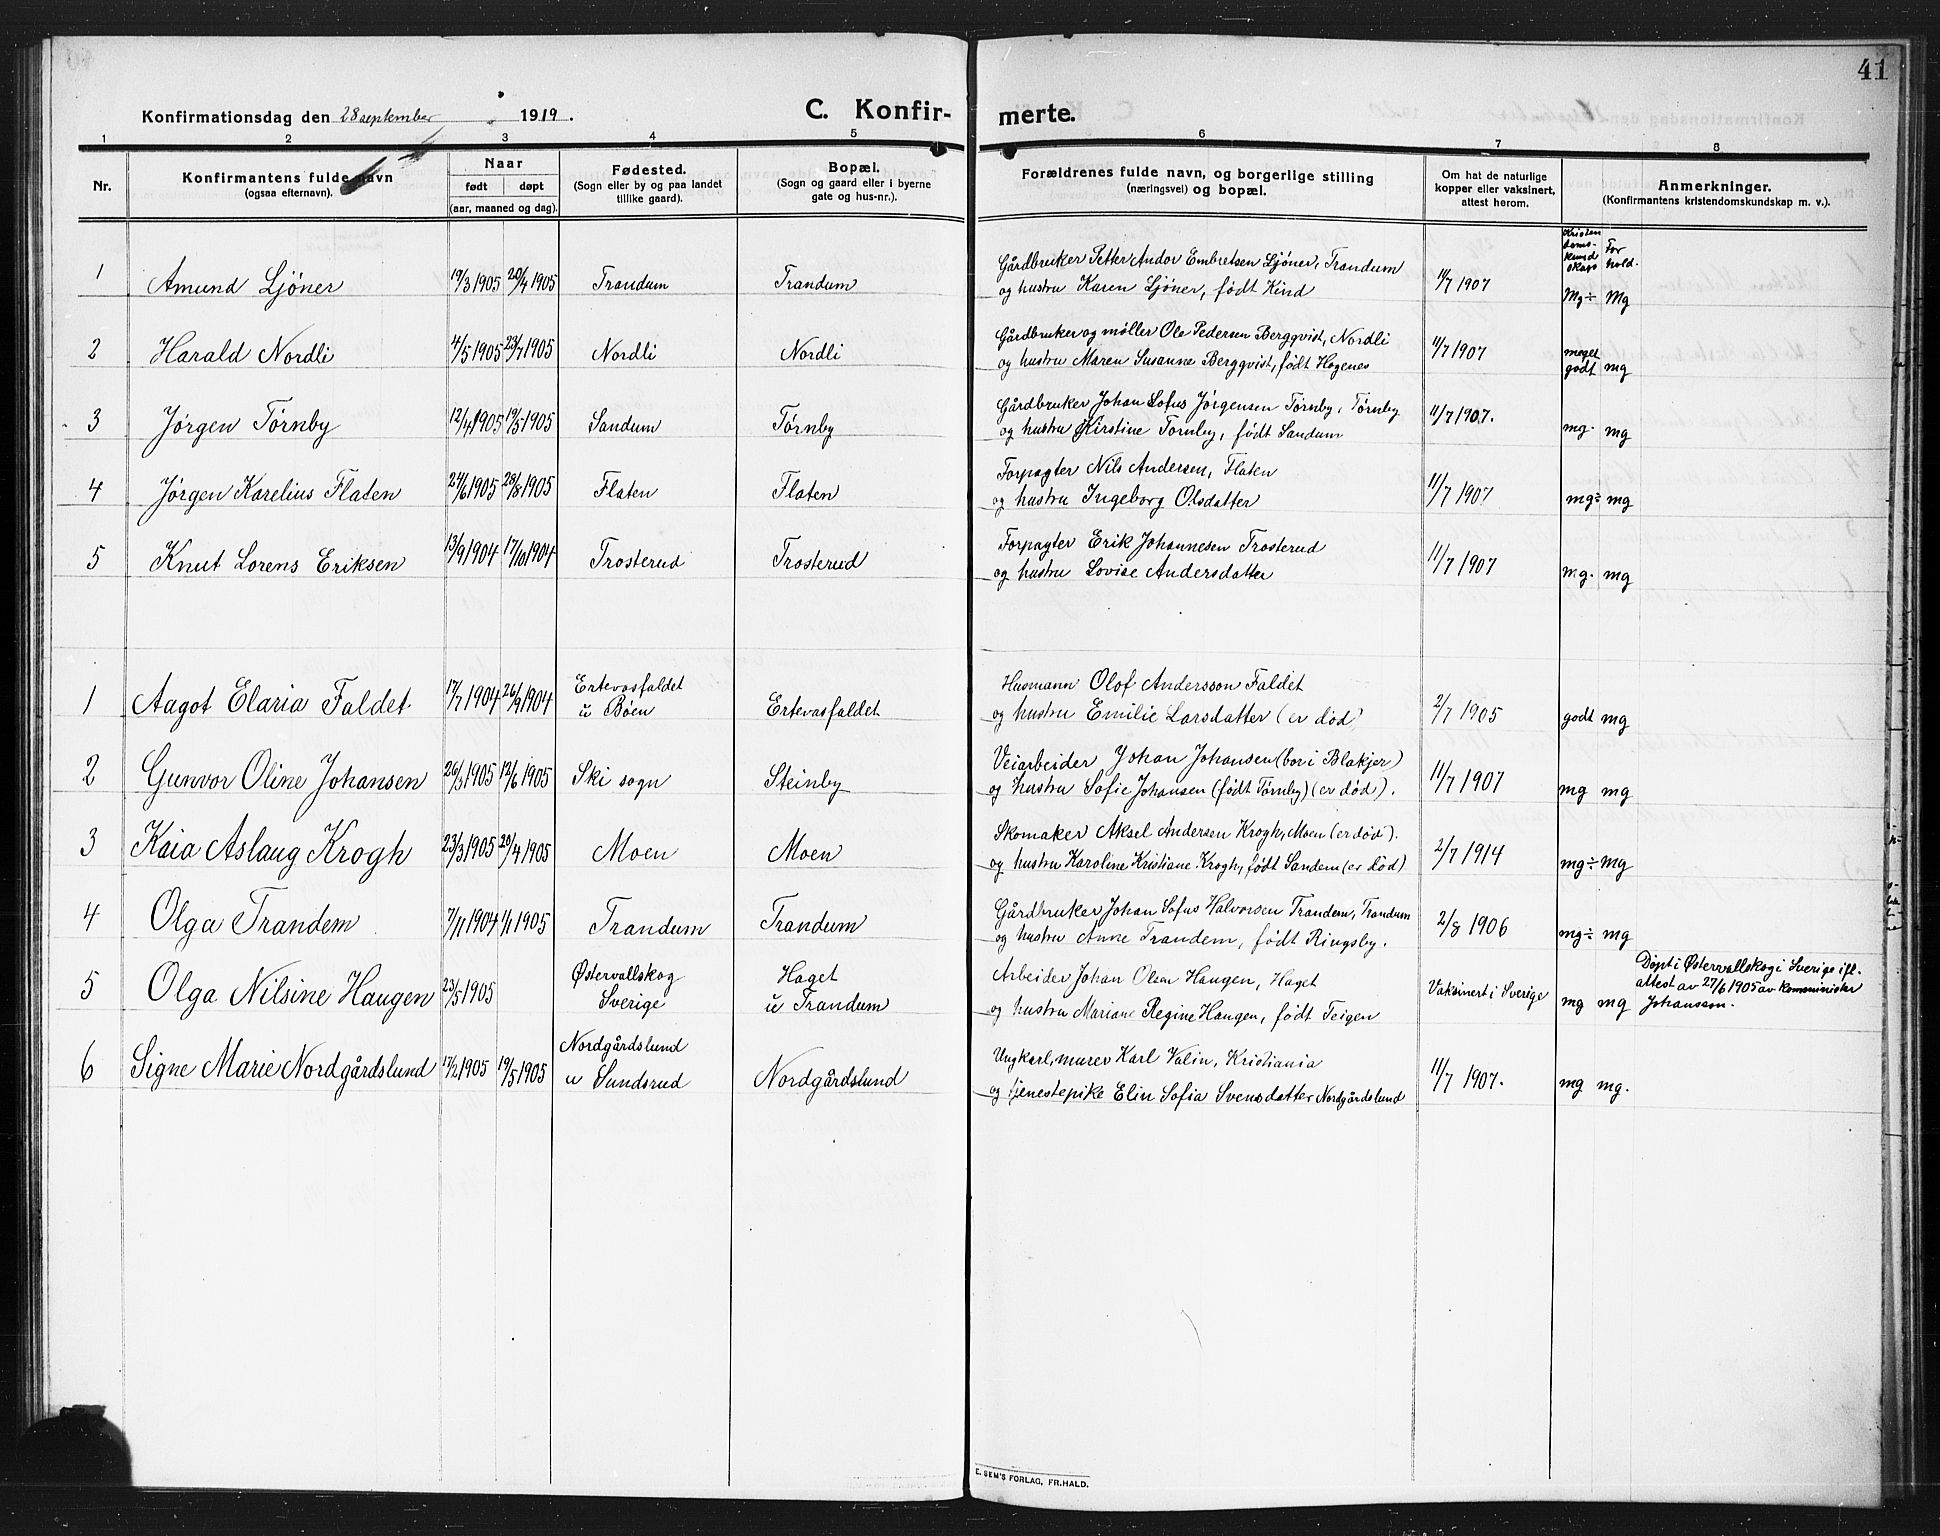 41
Konfirmationsdag den 28 september 1919.
C. Konfirmerte.
1 2 3 4 5 6 7 8
Nr.
Konfirmantens fulde navn
(ogsaa efternavn).
Naar
født døpt
(aar, maaned og dag).
Fødested.
(Sogn eller by og paa landet
tillike gaard).
Bopæl.
(Sogn og gaard eller i byerne
gate og hus-nr.).
Forældrenes fulde navn, og borgerlige stilling
(næringsvei) og bopæl.
Om hat de naturlige
kopper eller vaksinert,
attest herom.
Anmerkninger.
(Konfirmantens kristendomskundskap m. v.).
Kristen
doms-
kund
skaps
For
hold.
1 Amund Ljøner 19/3 1905 20/4 1905 Trandum Trandum
Gårdbruker Petter Andor Embretsen Ljöner, Trandum
og hustru Karen Ljöner, født Kind
11/7 1907 Mg÷ Mg
2 Harald Nordli 4/5 1905 23/7 1905 Nordli Nordli
Gårdbruker og møller Ole Pedersen Bergqvist, Nordli
og hustru Maren Susanne Bergqvist, født Hogenes
11/7 1907 meget
godt mg
3 Jørgen Tørnby 12/4 1905 19/5 1905 Sandum Tørnby
Gårdbruker Johan Sofus Jørgensen Tørnby, Tørnby
og hustru Kirstine Tornby, født Sandum
11/7 1907. mg. mg
4 Jørgen Karelius Flaten 24/6 1905 28/8 1905 Flaten Flaten
Forpagter Nils Andersen, Flaten
og hustru Ingeborg Olsdatter
11/7 1907 mg÷ mg
5 Knut Lorens Eriksen 13/9 1904 17/10 1904 Trosterud Trosterud
Forpagter Erik Johannesen Trosterud
og hustru Lovise Andersdatter
11/7 1907 mg. mg
1 Aagot Elaria Faldet. 17/7 1904 26/9 1904 Ertevasfaldet
u Böen Ertevasfaldet
Husmann Olof Andersson Faldet
og hustru Emilie Larsdatter (er död)
2/7 1905 godt mg
2 Gunvor Oline Johansen 26/3 1905 12/6 1905 Ski sogn Steinby
Veiarbeider Johan Johansen (bor i Blakjer)
og hustru Sofie Johansen (født Tørnby) (er död).
11/7 1907 mg mg
3 Kaia Aslaug Krogh 23/3 1905 20/4 1905 Moen Moen
Skomaker Aksel Andersen Krogh, Moen (er död).
og hustru Karoline Kristiane Krogh, født Sandem (er död)
2/7 1914 mg÷ Mg
4 Olga Trandem 7/11 1904 1/1 1905 Trandum Trandum
Gårdbruker Johan Sofus Halvorsen Trandem, Trandum
og hustru Anne Trandem, født Ringsby.
2/8 1906 mg÷ mg
5 Olga Nilsine Haugen 23/5 1905 Østervallskog
Sverige Haget
u Trandum
Arbeider Johan Olsen Haugen, Haget
og hustru Mariane Regine Haugen, født Teigen
Vaksinert i Sverige mg mg
Döpt i Østervallskog i Sverige ifl.
attest av 27/6 1905 av Komminister
Johansson.
6 Signe Marie Nordgårdslund 17/2 1905 19/5 1905 Nordgårdslund
u Sundsrud Nordgårdslund
Ungkarl, murer Karl Valin, Kristiania
og Tjenestepike Elin Sofia Svensdatter Nordgårdslund
11/7 1907. mg mg.
E. SEM'S FORLAG, FR.HALD.